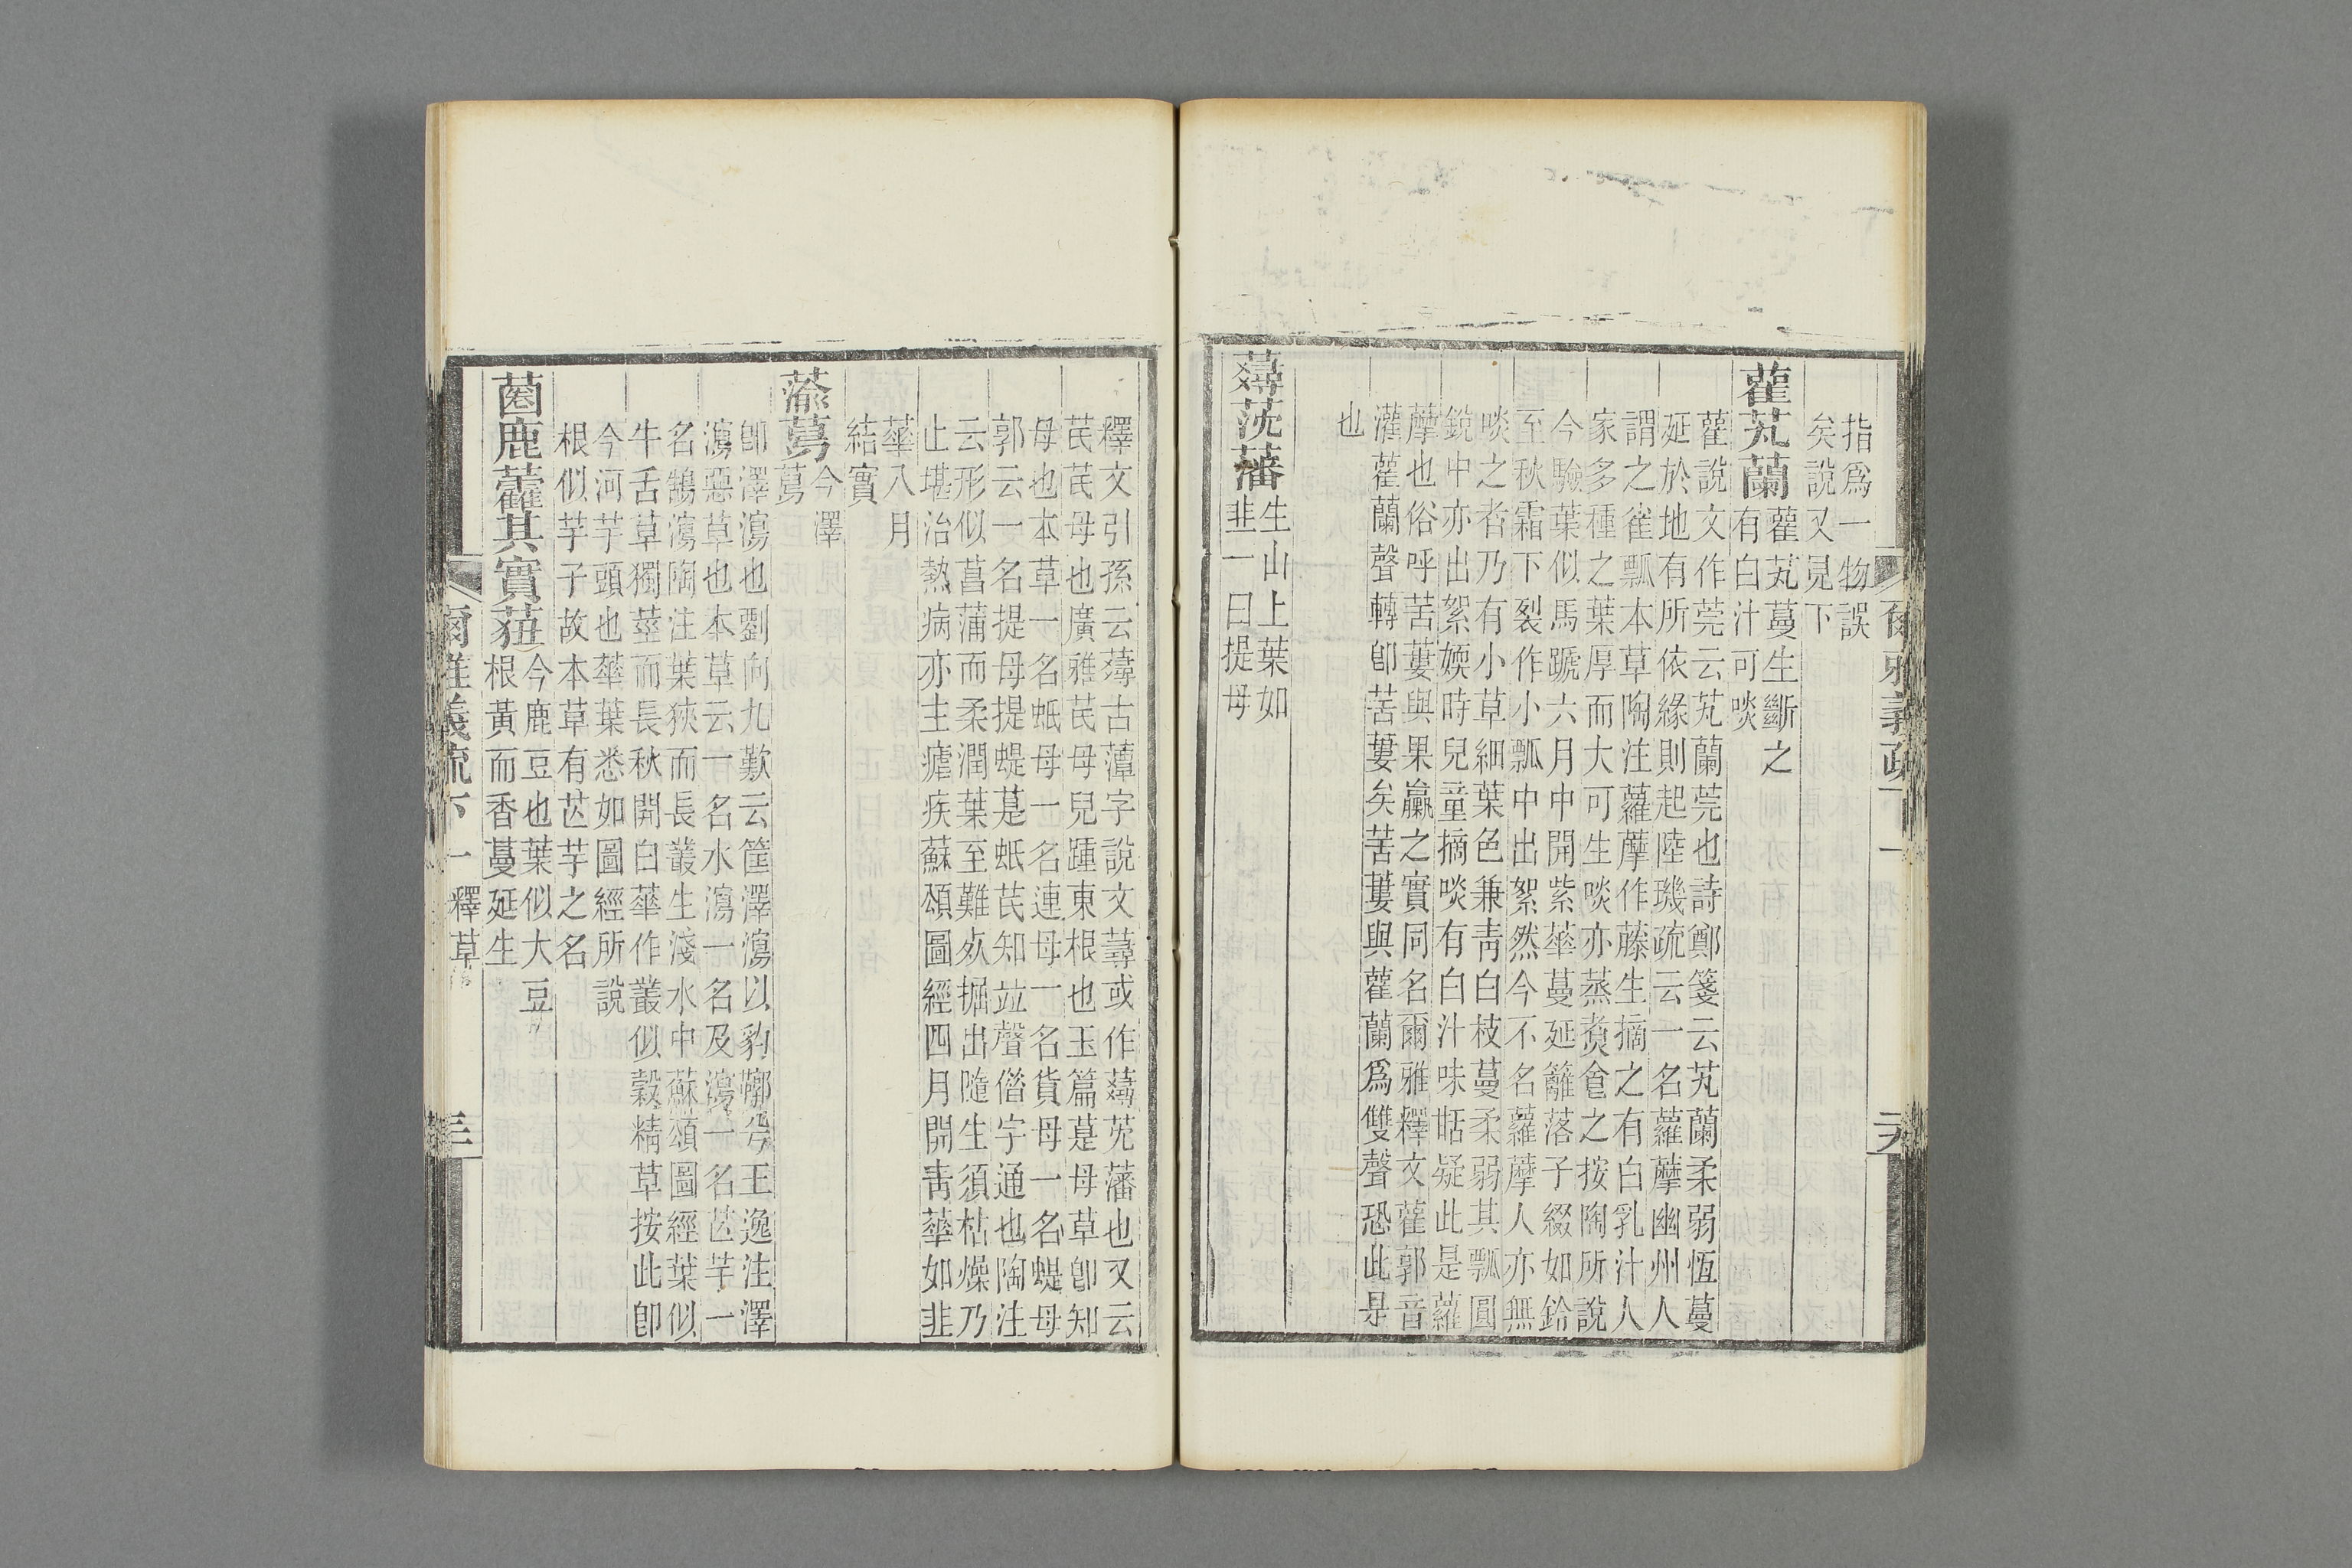 爾雅義疏下一
指爲一物誤
矣說又見下
雚芄蘭雚芄蔓生斷之
有白汁可啖
雚說文作莞云芄蘭莞也詩鄭箋云芄蘭柔弱恆蔓
延於地有所依緣則起陸璣疏云一名蘿藦幽州人
謂之雀瓢本草陶注蘿藦作藤生摘之有白乳汁人
家多種之葉厚而大可生啖亦蒸煑食之按陶所說
今驗葉似馬蹏六月中開紫華蔓延籬落子綴如鈴
至秋霜下裂作小瓢中出絮然今不名蘿藦人亦無
啖之者乃有小草細葉色兼青白枝蔓柔弱其瓢圓
銳中亦出絮媆時兒童摘啖有白汁味甛疑此是蘿
藦也俗呼苦蔞與果臝之實同名爾雅釋文雚郭音
灌雚蘭聲轉卽苦蔞矣苦蔞與雚蘭爲雙聲恐此是
也
蕁莐藩生山上葉如
韭一曰提母
釋文引孫云蕁古藫字說文蕁或作蕁芫藩也又云
芪芪母也廣雅芪母兒踵東根也玉篇䓳母草卽知
母也本草一名蚔母一名連母一名貨母一名蝭母
郭云一名提母提蝭䓳蚔芪知竝聲借字通也陶注
云形似菖蒲而柔潤葉至難㱙掘出隨生須枯燥乃
止堪治熱病亦主瘧疾蘇頌圖經四月開靑華如韭
華八月
結實
蕍蕮今澤
蕮
卽澤瀉也劉向九歎云筐澤瀉以豹鞹兮王逸注澤
瀉惡草也本草云一名水瀉一名及瀉一名芒芋一
名鵠瀉陶注葉狹而長叢生淺水中蘇頌圖經葉似
牛舌草獨莖而長秋開白華作叢似穀精草按此卽
今河芋頭也華葉悉如圖經所說
根似芋子故本草有芒芋之名
菌鹿藿其實莥今鹿豆也葉似大豆
根黃而香蔓延生
爾雅義疏下一釋草